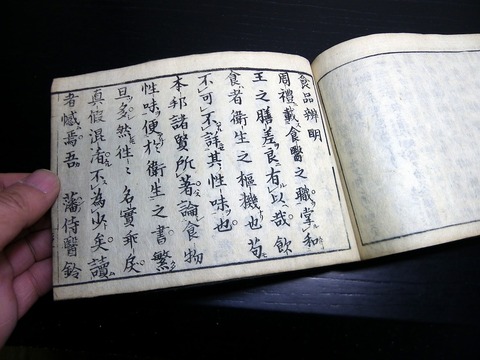 食品辨明
周禮載食醫之職掌和
王之膳差良有以哉飲
食者衛生之樞機也苟
不可不詳其性味也
本邦諸賢所著論食物
性味便於衛生之書繁
且多然往々名實乖戻
真假混淆不為少矣讀
者憾焉吾 藩侍醫鈴